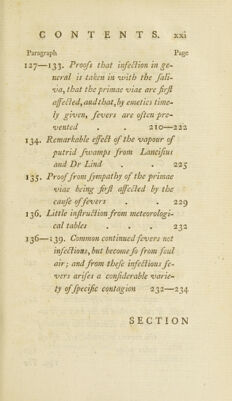 CONTENTS. xxi
Paragraph Page
127—133. Proofs that infection in ge-
neral is taken in with the sali-
va, that the primae viae are first
affected, and that, by emetics time-
ly given, fevers are often pre-
vented . 210—222
134. Remarkable effect of the vapour of
putrid swamps from Lancisius
and Dr Lind . . 225
135. Proof from sympathy of the primae
viae being first affected by the
cause of fevers . . 229
136. Little instruction from meteorologi-
cal tables . . . 232
136—139. Common continued fevers not
infectious, but become so from foul
air; and from these infectious fe-
vers arises a considerable varie-
ty of specific contagion 232—234
SECTION